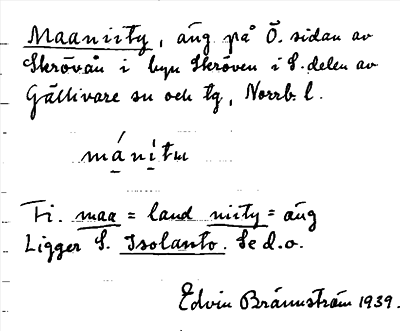 Maaniity, äng på Ö. sidan av
Skrövån i byn Skröven i S. delen av
Gällivare sn och tg, Norrb. l.
mánitu
Fi. maa = land niity = äng
Ligger S. Isolanto. Se d.o.
Edvin Brännström 1939.